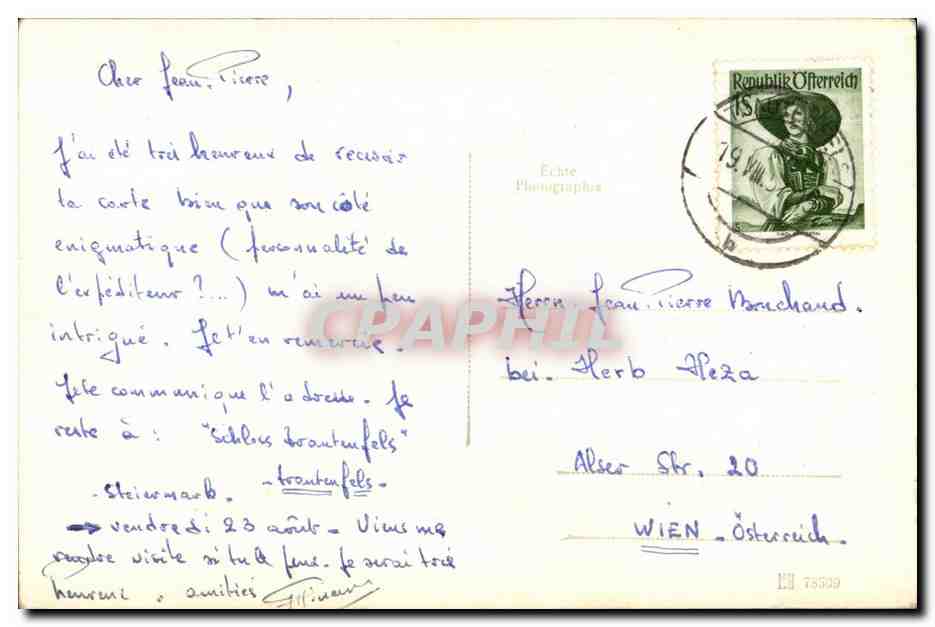 Cher Jean-Pierre,
J'ai été très heureux de recevoir
ta carte bien que son côté
enigmatique (personnalité de
l'expéditeur ?...) m'ai un peu
intrigué. Je t'en remercie.
Je te communique l'adresse. Je
reste à : "Schloss Trautenfels"
- Trautenfels -
- Steiermark.
→ vendredi 23 août. Viens me
rendre visite si tu peux. Je serai très
heureux. amitiés
Echte
Photographie
Republik Österreich
1S
19.VIII.5
b
Herrn Jean-Pierre Bouchaud.
bei. Herb Heza
Alser Str. 20
WIEN - Österreich.
78509
CPAPHIL